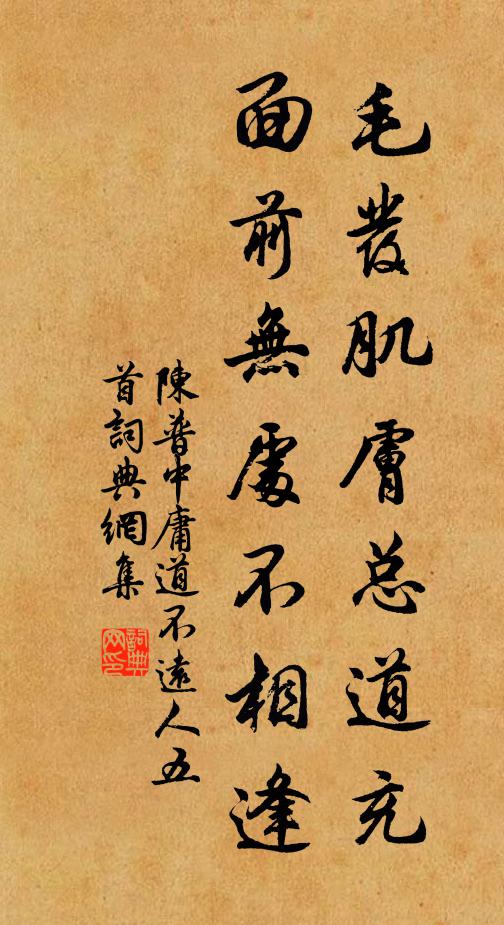 毛發肌膚总道充
面前無處不相逢
陳普中庸道不遠人五
首詞典網集
詞典网印